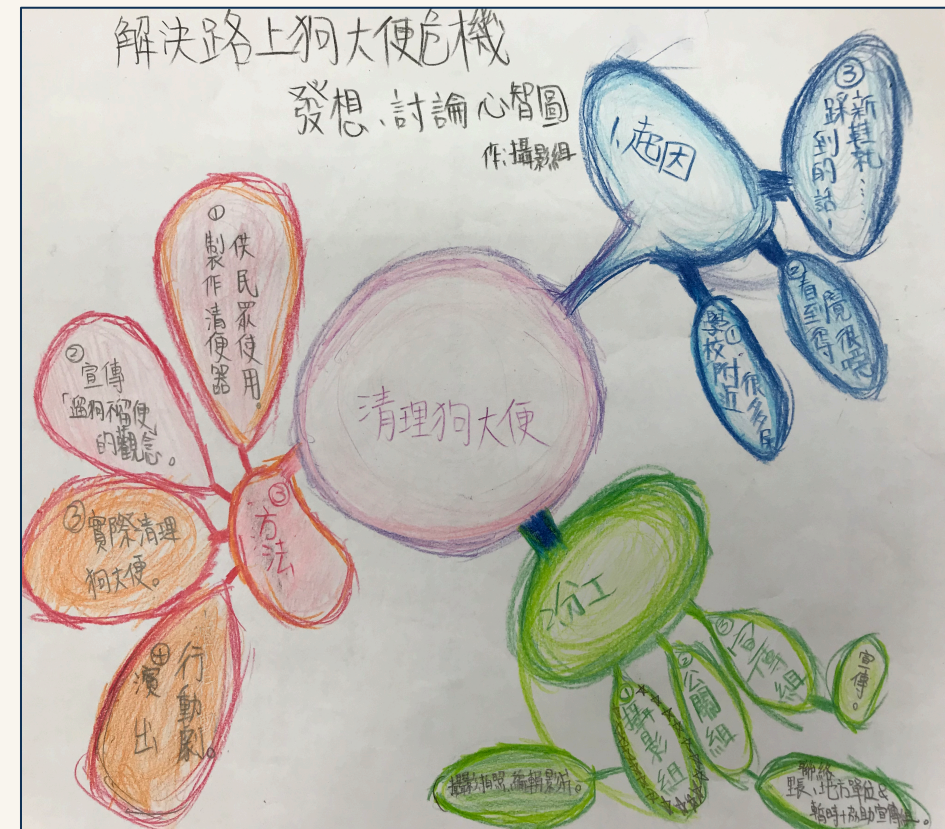 解決路上狗大便危機
發想、討論心智圖
作:攝影組
清理狗大便
1、起因
①學校附近,很多
②看到覺得很噁
③新鞋杔……
踩到的話,
2分工
①攝影組
攝影拍照、編輯影片。
②公關組
聯絡
里長、地方單位&
暫時+協助宣傳組。
③企宣組
宣傳。
③方法
①製作清便器
供民眾使用。
②宣傳
「遛狗不留便
的觀念。
③實際清理
狗大便。
④演出
行動劇。